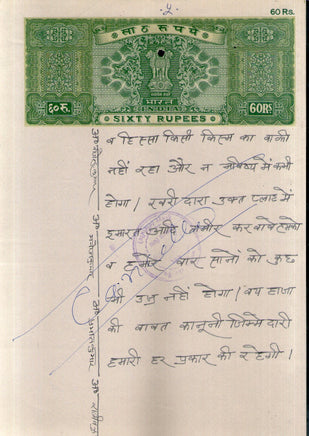 ५
60 Rs.
साठ रूपये
भारत
INDIA
६०रु.
60RS
SIXTY RUPEES
व हिस्सा किसी किस्म का बाकी
नहीं रहा और न भविष्य में कभी
होगा। खरीदारा उक्त प्लाट में
इमारत आदि तामीर करवावे हमको
व हमारे वारसानों को कुछ
भी उज्र नहीं होगा। वय हाजा
की बावत कानूनी जिम्मेदारी
हमारी हर प्रकार की रहेगी।